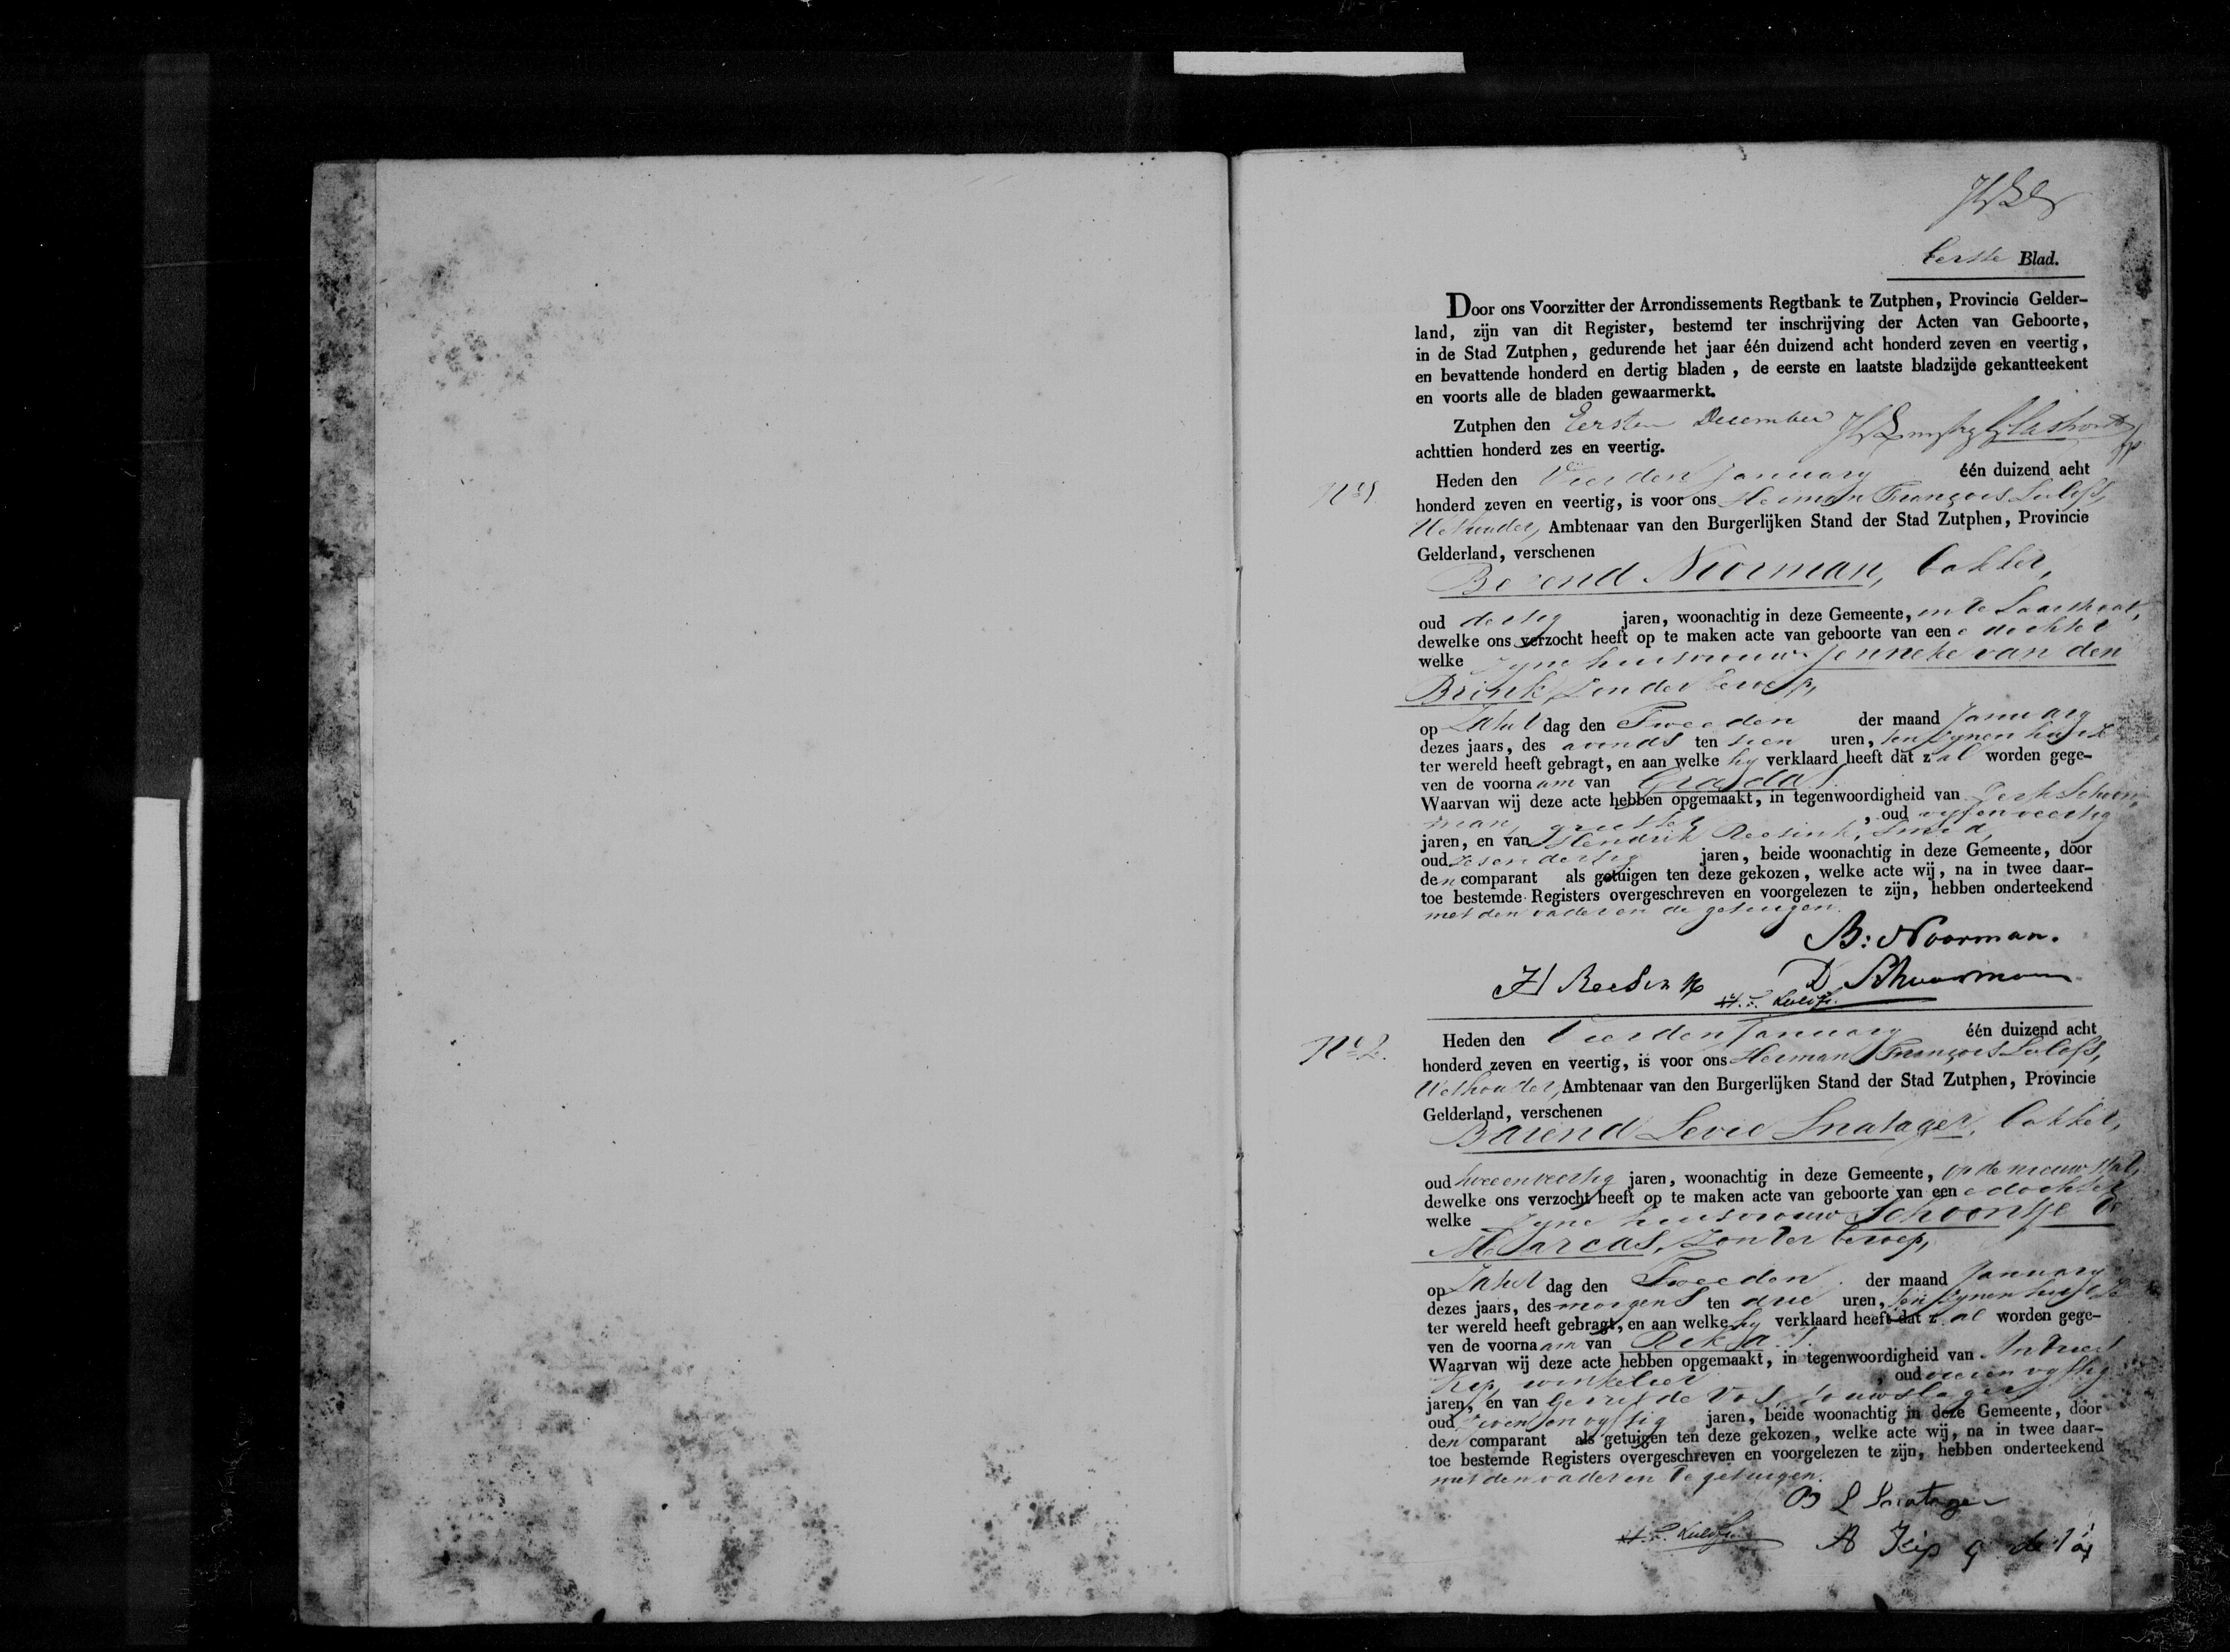 Eerste Blad.
Door ons Voorzitter der Arrondissements Regtbank te Zutphen, Provincie Gelder-
land, zijn van dit Register, bestemd ter inschrijving der Acten van Geboorte,
in de Stad Zutphen, gedurende het jaar één duizend acht honderd zeven en veertig,
en bevattende honderd en dertig bladen, de eerste en laatste bladzijde gekantteekent
en voorts alle de bladen gewaarmerkt.
Zutphen den Eersten December
achttien honderd zes en veertig.
No 1. Heden den Vierden January één duizend acht
honderd zeven en veertig, is voor ons Herman François Lulofs,
Wethouder, Ambtenaar van den Burgerlijken Stand der Stad Zutphen, Provincie
Gelderland, verschenen
Berend Noorman, bakker,
oud dertig jaren, woonachtig in deze Gemeente, in de Laarstraat,
dewelke ons verzocht heeft op te maken acte van geboorte van eene dochter
welke zyne huisvrouw Jenneke van den
Brink, zonder beroep,
op Zaturdag den Tweeden der maand January
dezes jaars, des avonds ten tien uren, ten zynen huize
ter wereld heeft gebragt, en aan welke hy verklaard heeft dat zal worden gege-
ven de voornaam van Grada.
Waarvan wij deze acte hebben opgemaakt, in tegenwoordigheid van Derk Schuur-
man, , oud vyfenveertig
jaren, en van Hendrik Reesink, smid,
oud zesendertig jaren, beide woonachtig in deze Gemeente, door
den comparant als getuigen ten deze gekozen, welke acte wij, na in twee daar-
toe bestemde Registers overgeschreven en voorgelezen te zijn, hebben onderteekend
met den vader en de getuigen.
B: Noorman.
H Reesink D Schuurman
H. F. Lulofs.
No 2. Heden den Vierden January één duizend acht
honderd zeven en veertig, is voor ons Herman François Lulofs,
Wethouder, Ambtenaar van den Burgerlijken Stand der Stad Zutphen, Provincie
Gelderland, verschenen
Barend Levie Snatager, bakker,
oud tweeenveertig jaren, woonachtig in deze Gemeente, op de nieuwstad,
dewelke ons verzocht heeft op te maken acte van geboorte van eene dochter
welke zyne huisvrouw Schoontje de
Marcas, zonder beroep,
op Zaturdag den Tweeden der maand January
dezes jaars, des morgens ten drie uren, ten zynen huize
ter wereld heeft gebragt, en aan welke hy verklaard heeft dat zal worden gege-
ven de voornaam van Reksa.
Waarvan wij deze acte hebben opgemaakt, in tegenwoordigheid van Andries
Kip, winkelier , oud
jaren, en van Gerrit de Vos, touwslager
oud zevenenvyftig jaren, beide woonachtig in deze Gemeente, door
den comparant als getuigen ten deze gekozen, welke acte wij, na in twee daar-
toe bestemde Registers overgeschreven en voorgelezen te zijn, hebben onderteekend
met den vader en de getuigen.
B L Snatager
H. F. Lulofs. A Kip G de Vos